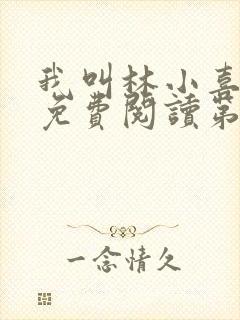 我叫林小喜
免費閱讀第
一念情久